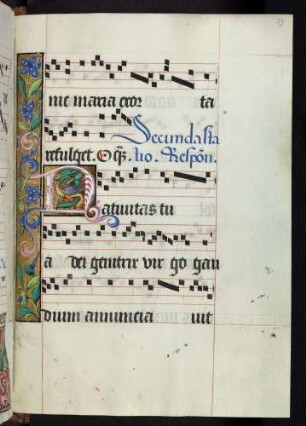 nie maria exor ta
Secunda sta
refulget. O q̃3. tio. Respon̄.
Natiuitas tu
a dei genitrix vir go gau
dium annuncia uit